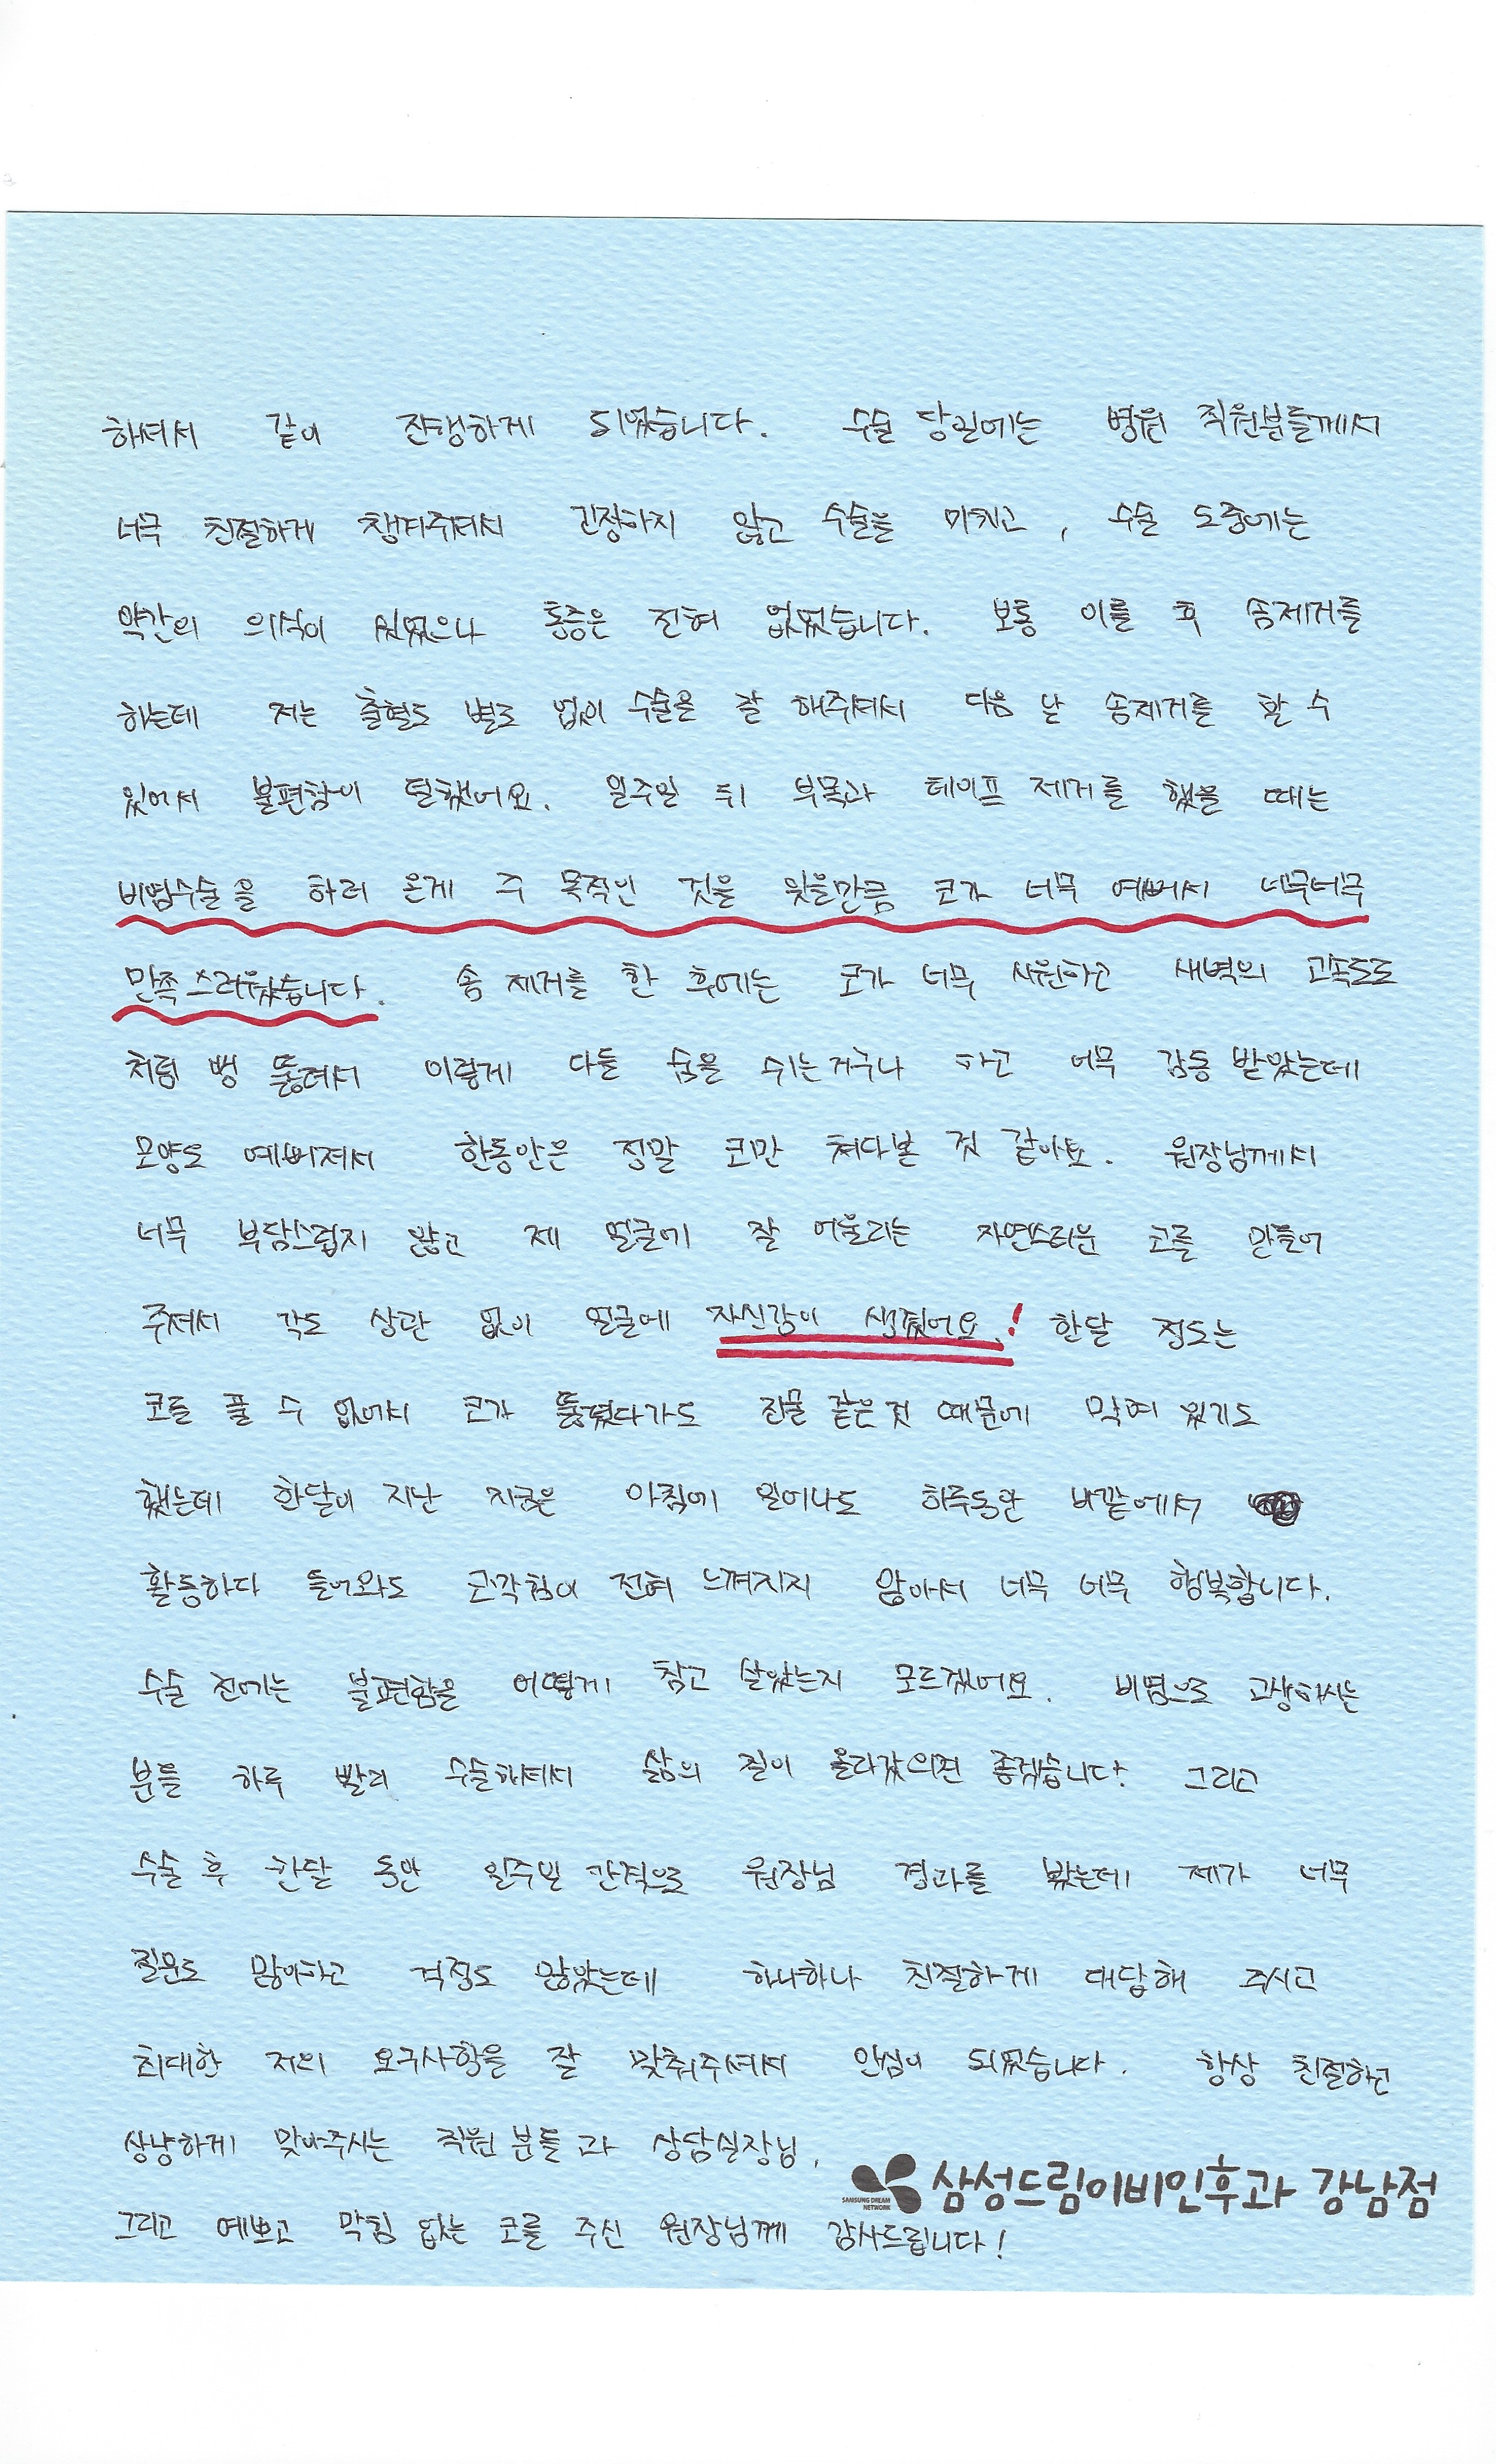 하셔서 같이 진행하게 되었습니다. 수술 당일에는 병원 직원분들께서
너무 친절하게 챙겨주셔서 긴장하지 않고 수술을 마치고, 수술 도중에는
약간의 의식이 있었으나 통증은 전혀 없었습니다. 보통 이틀 후 솜제거를
하는데 저는 출혈도 별로 없이 수술을 잘 해주셔서 다음 날 솜제거를 할 수
있어서 불편함이 덜했어요. 일주일 뒤 부목과 테이프 제거를 했을 때는
비염수술을 하러 온게 주 목적인 것을 잊을만큼 코가 너무 예뻐서 너무너무
만족스러웠습니다. 솜 제거를 한 후에는 코가 너무 시원하고 새벽의 고속도로
처럼 뻥 뚫려서 이렇게 다들 숨을 쉬는거구나 하고 너무 감동 받았는데
모양도 예뻐져서 한동안은 정말 코만 쳐다본 것 같아요. 원장님께서
너무 부담스럽지 않고 제 얼굴에 잘 어울리는 자연스러운 코를 만들어
주셔서 각도 상관 없이 얼굴에 자신감이 생겼어요! 한달 정도는
코를 풀 수 없어서 코가 뚫렸다가도 진물 같은 것 때문에 막혀 있기도
했는데 한달이 지난 지금은 아침에 일어나도 하루동안 바깥에서
활동하다 들어와도 코막힘이 전혀 느껴지지 않아서 너무 너무 행복합니다.
수술 전에는 불편함을 어떻게 참고 살았는지 모르겠어요. 비염으로 고생하시는
분들 하루 빨리 수술하셔서 삶의 질이 올라갔으면 좋겠습니다. 그리고
수술 후 한달 동안 일주일 간격으로 원장님 경과를 봤는데 제가 너무
질문도 많이하고 걱정도 많았는데 하나하나 친절하게 대답해 주시고
최대한 저의 요구사항을 잘 맞춰주셔서 안심이 되었습니다. 항상 친절하고
상냥하게 맞아주시는 직원분들과 상담실장님,
SAMSUNG DREAM NETWORK 삼성드림이비인후과 강남점
그리고 예쁘고 막힘 없는 코를 주신 원장님께 감사드립니다!